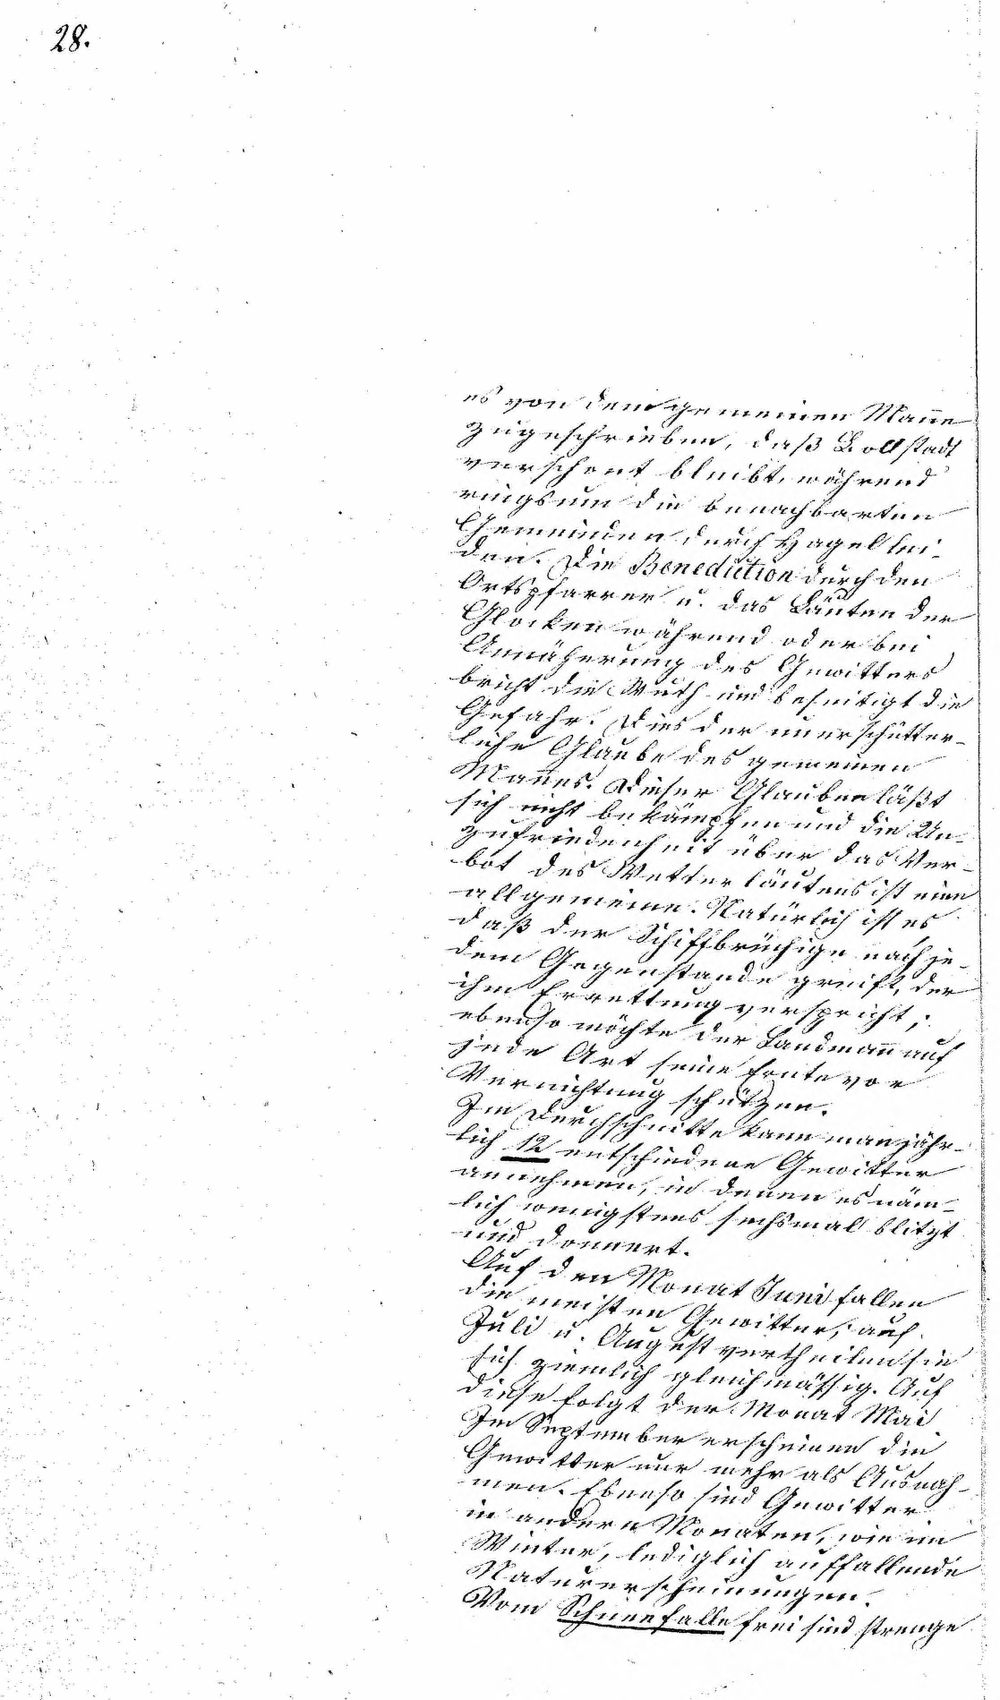 28.
es von dem gemeinen Mann̄e
zugeschrieben, daß Bollstadt
verschont bleibt, während
ringsum die benachbarten
Gemeinden durch Hagel lei-
den. Die Benediction durch den
Ortspfarrer u. das Läuten der
Glocken während oder bei
Annäherung des Gewitters
bricht die Wuth und beseitigt die
Gefahr. Dies der unerschütter-
liche Glaube des gemeinen
Man̄es. Dieser Glauben läßt
sich nicht bekämpfen und die Un-
zufriedenheit über das Ver-
bot des Wetterläutens ist eine
allgemeine. Natürlich ist es
daß der Schiffbrüchige nach je-
dem Gegenstande greift, der
ihm Errettung verspricht;
ebenso möchte der Landman̄ auf
jede Art seine Ernte vor
Vernichtung schützen.
Im Durchschnitte kann man jähr-
lich 12 entschiedene Gewitter
annehmen, in denen es näm-
lich wenigstens sechsmal blitzt
und donnert.
Auf den Monat Juni fallen
die meisten Gewitter; auf
Juli u. August vertheilen sie
sich ziemlich gleichmässig. Auf
diese folgt der Monat Mai
Im September erscheinen die
Gewitter nur mehr als Ausnah-
men. Ebenso sind Gewitter
in andern Monaten, wie im
Winter, lediglich auffallende
Naturerscheinungen.
Vom Schneefalle frei sind strenge